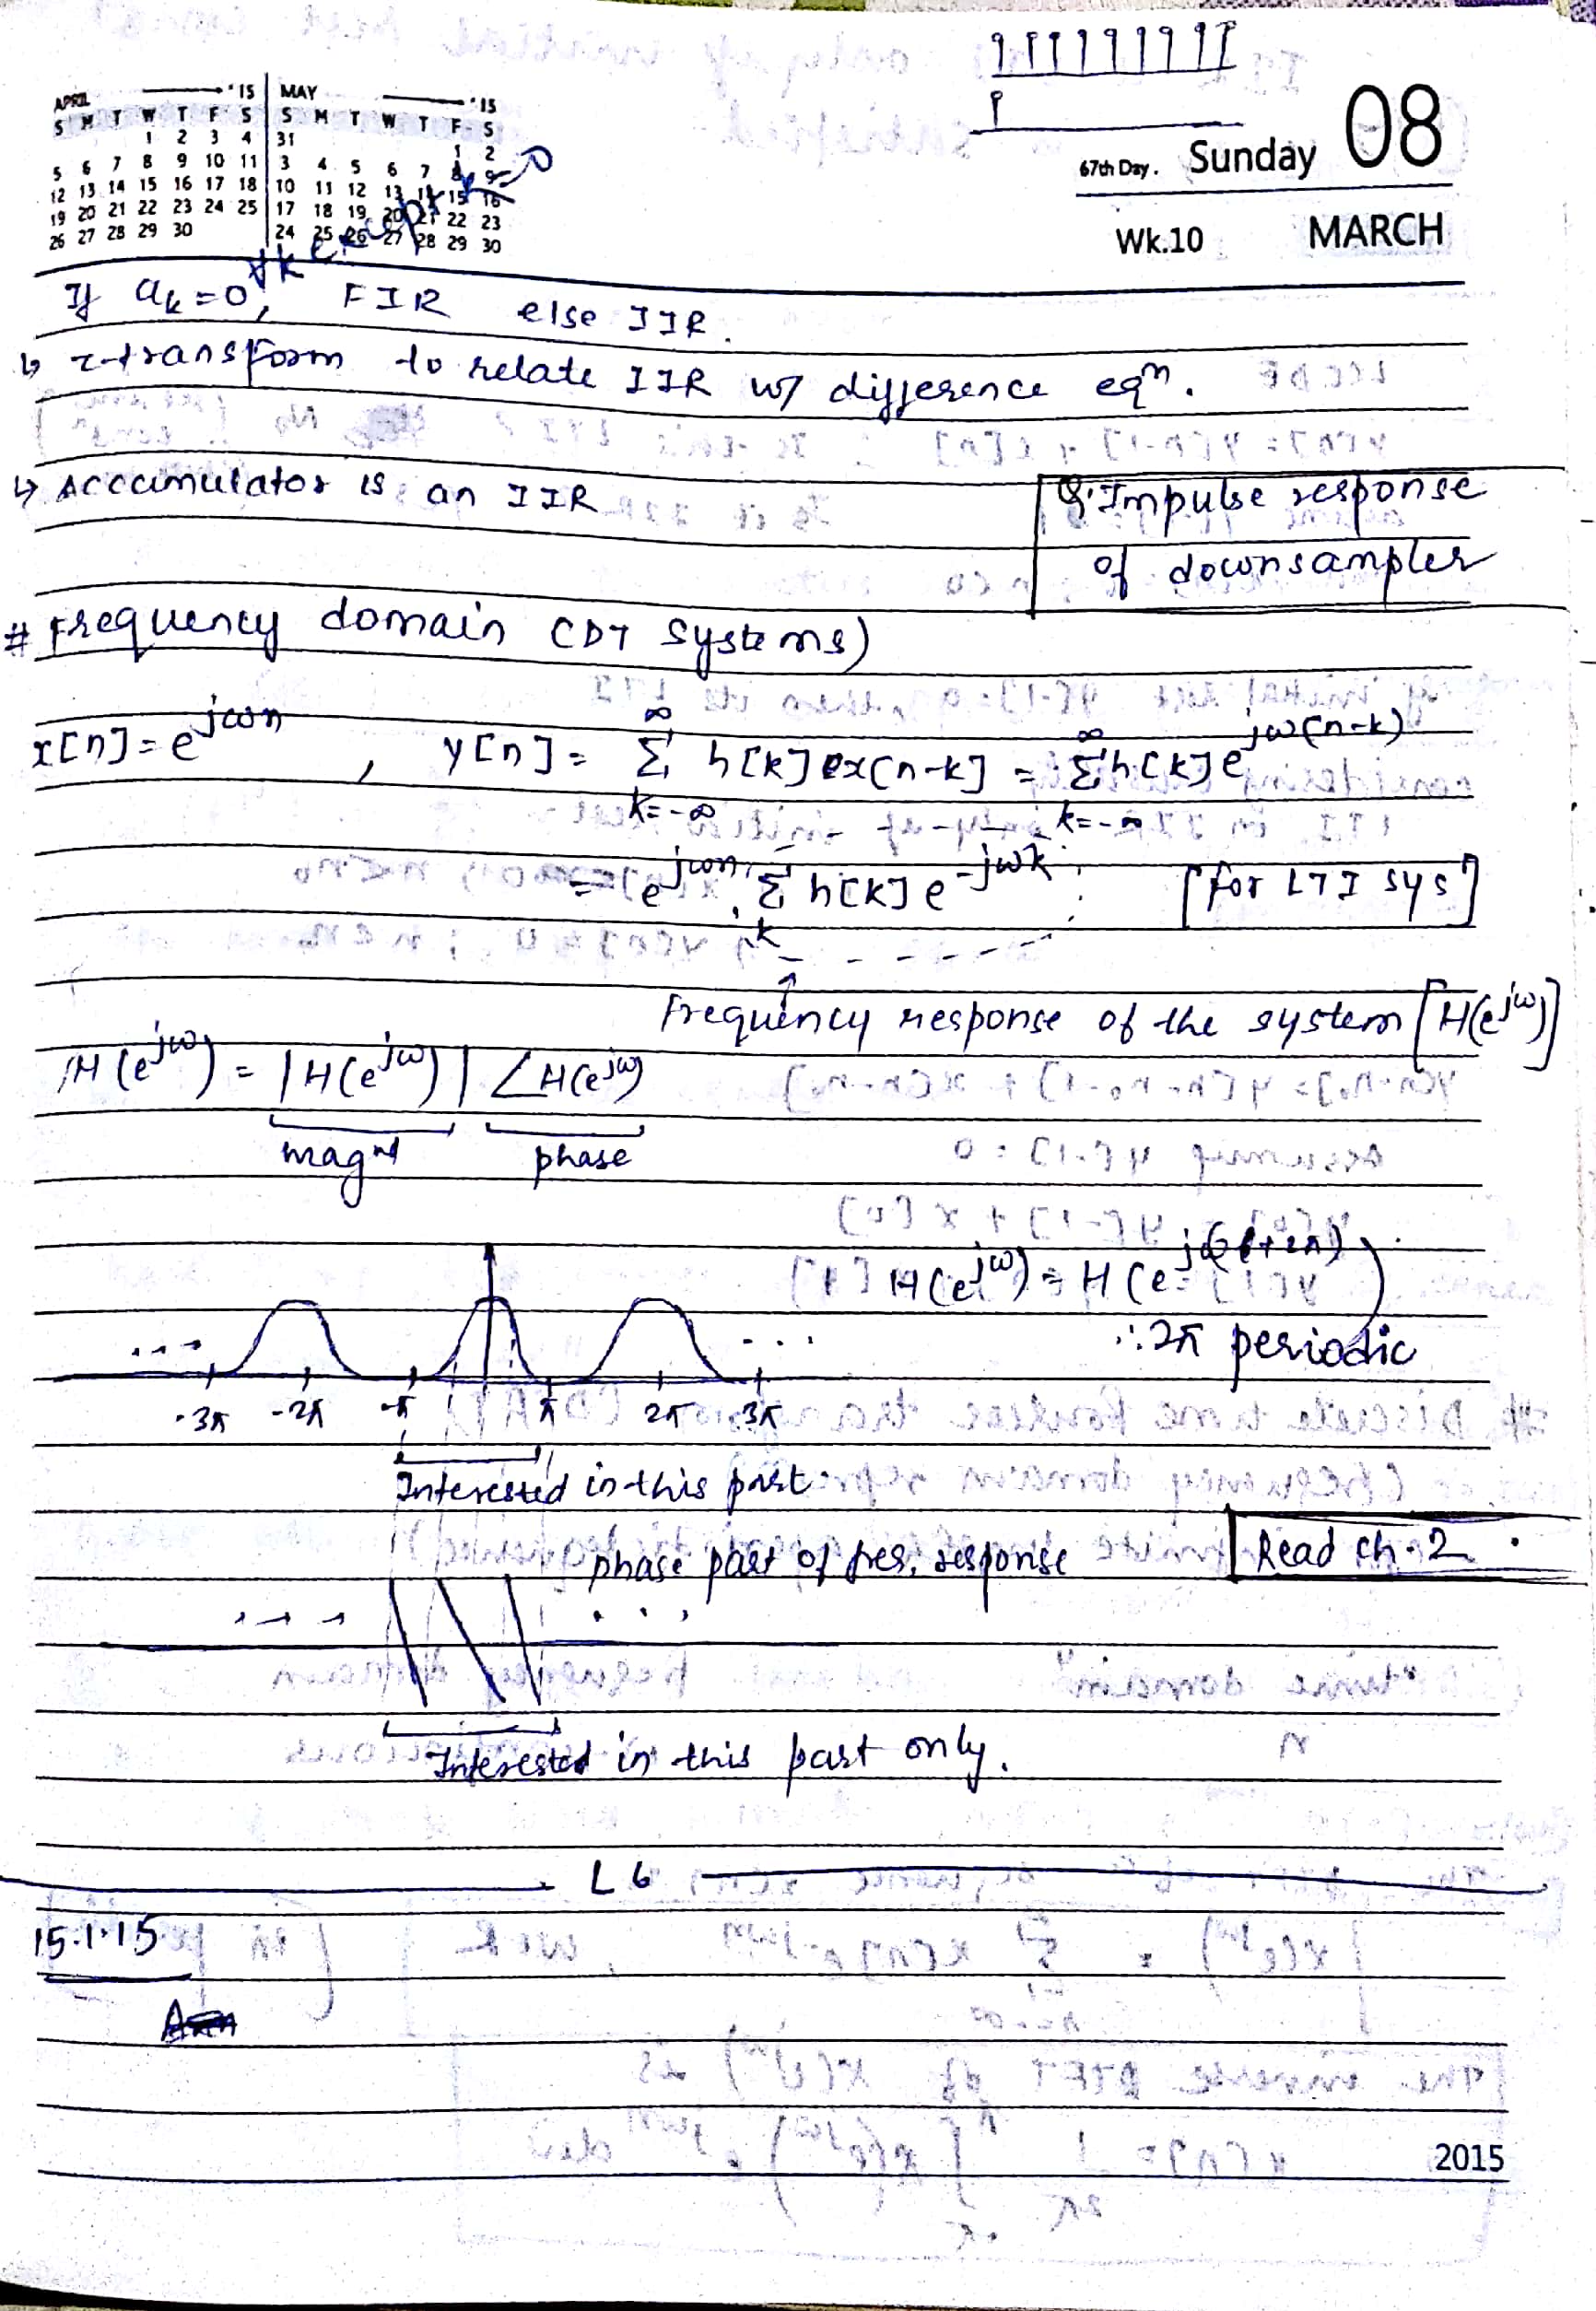 APRIL '15 MAY '15
S M T W T F S S M T W T F S
1 2 3 4 31 1 2
5 6 7 8 9 10 11 3 4 5 6 7 8 9
12 13 14 15 16 17 18 10 11 12 13 14 15 16
19 20 21 22 23 24 25 17 18 19 20 21 22 23
26 27 28 29 30 24 25 26 27 28 29 30
67th Day. Sunday 08
Wk.10 MARCH
∀k except k=0
If ak=0, FIR else IIR.
↳ z-transform to relate IIR w/ difference eqn.
↳ Accumulator is an IIR
Q. Impulse response
of downsampler
# Frequency domain (DT systems)
x[n] = e^jωn , y[n] = ∞ Σ k=-∞ h[k] x[n-k] = ∞ Σ k=-∞ h[k] e^jω(n-k)
= e^jωn . Σ k h[k] e^-jωk [for LTI sys]
Frequency response of the system [H(e^jω)]
H(e^jω) = |H(e^jω)| ∠H(e^jω)
magnd phase
H(e^jω) = H(e^j(ω+2π))
∴ 2π periodic
... ...
-3π -2π -π π 2π 3π
Interested in this part
phase part of freq. response
Read ch-2
... ...
Interested in this part only.
L6
15.1.15
2015